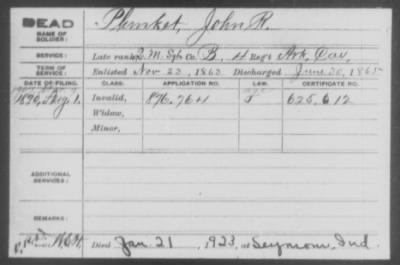 DEAD
NAME OF SOLDIER:
Plunket, John R.
SERVICE:
Late rank, Q. M. Sgt. Co. B, 4 Reg't Ark. Cav.
TERM OF SERVICE:
Enlisted Nov 23, 1863 Discharged June 30, 1865
DATE OF FILING. CLASS. APPLICATION NO. LAW. CERTIFICATE NO.
1890, Aug 1. Invalid, 876.764 625.612
Widow,
Minor,
ADDITIONAL SERVICES:
REMARKS:
Died Jan. 21, 1923, at Seymour, Ind.